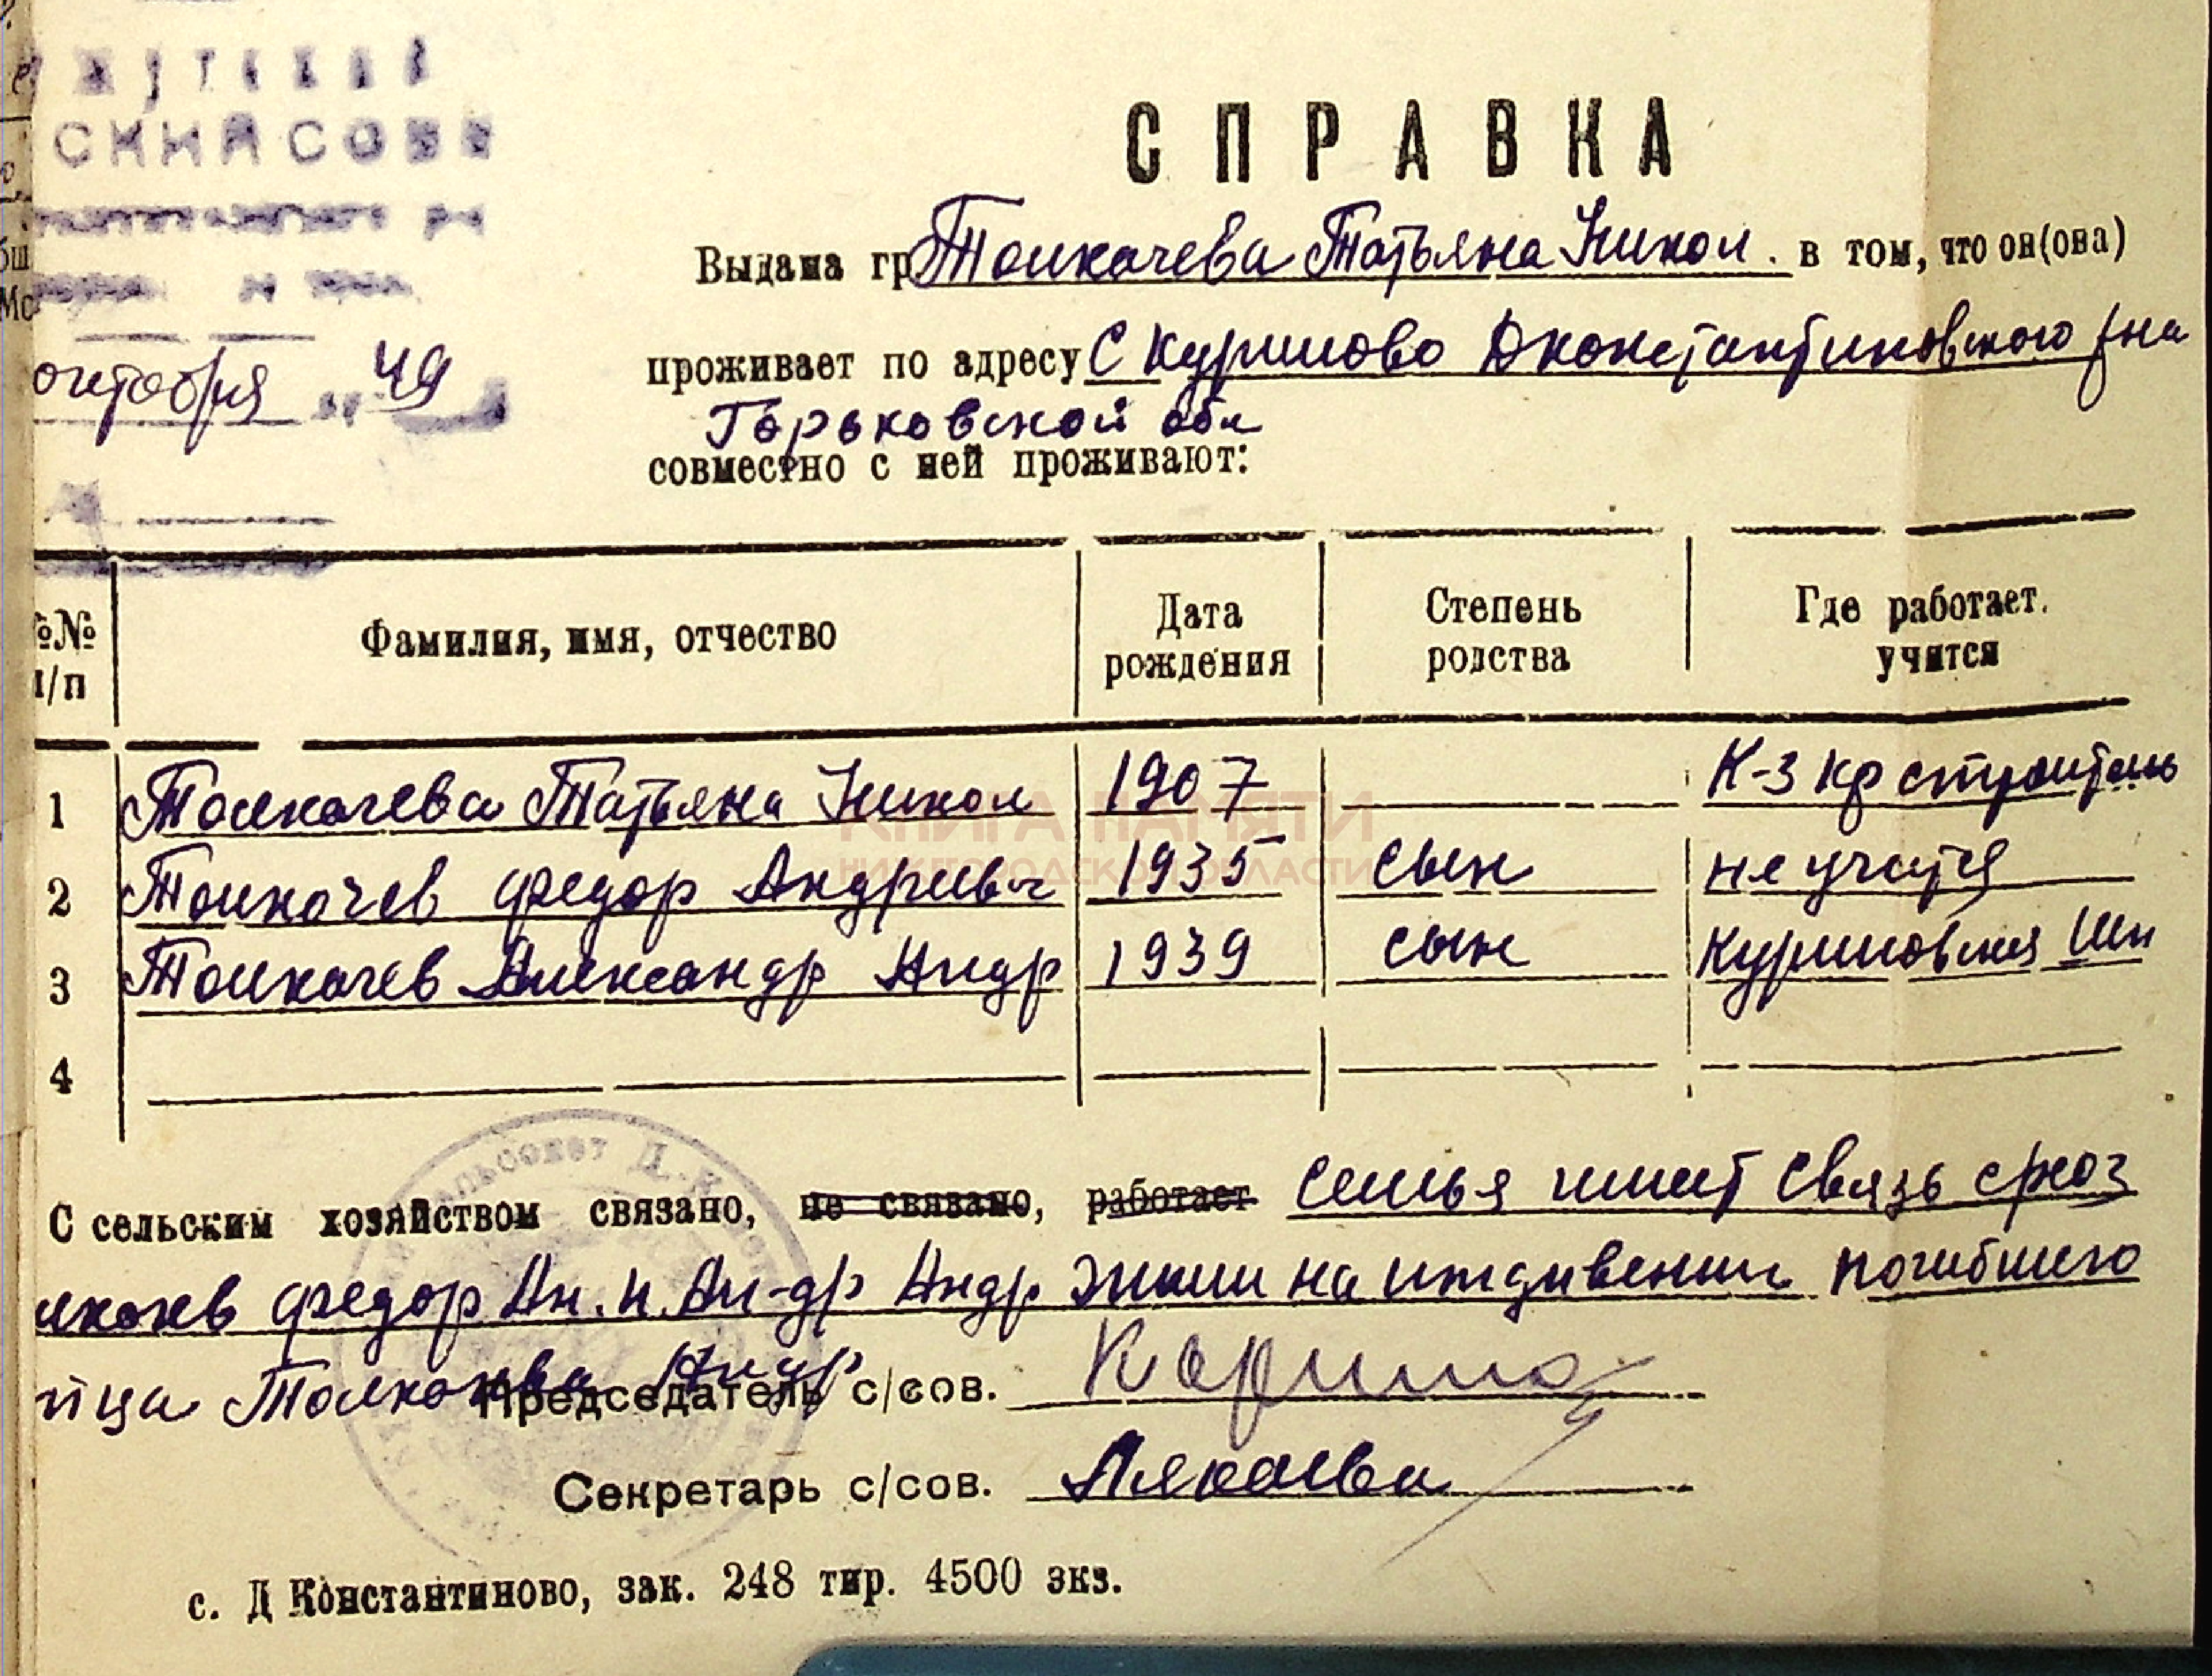 СКИЙ СОВЕ
СПРАВКА
Выдана гр Толкачева Татьяна Никол. в том, что он(она)
октября 49
проживает по адресу С Курилово Дконстантиновского р на
Горьковской обл
совместно с ней проживают:
№№ п/п Фамилия, имя, отчество Дата рождения Степень родства Где работает. учится
1 Толкачева Татьяна Никол 1907 К-з кр строитель
2 Толкачев Федор Андреевич 1935 сын не учится
3 Толкачев Александр Андр 1939 сын Куриловская Шк
4
КНИГА ПАМЯТИ
НИЖЕГОРОДСКОЙ ОБЛАСТИ
С сельским хозяйством связано, не связано, работает семья имеет связь с
Федор Ан. и Ал-др Андр жили на иждивении погибшего
Андр
Председатель с/сов.
Секретарь с/сов.
с. Д Константиново, зак. 248 тир. 4500 экз.